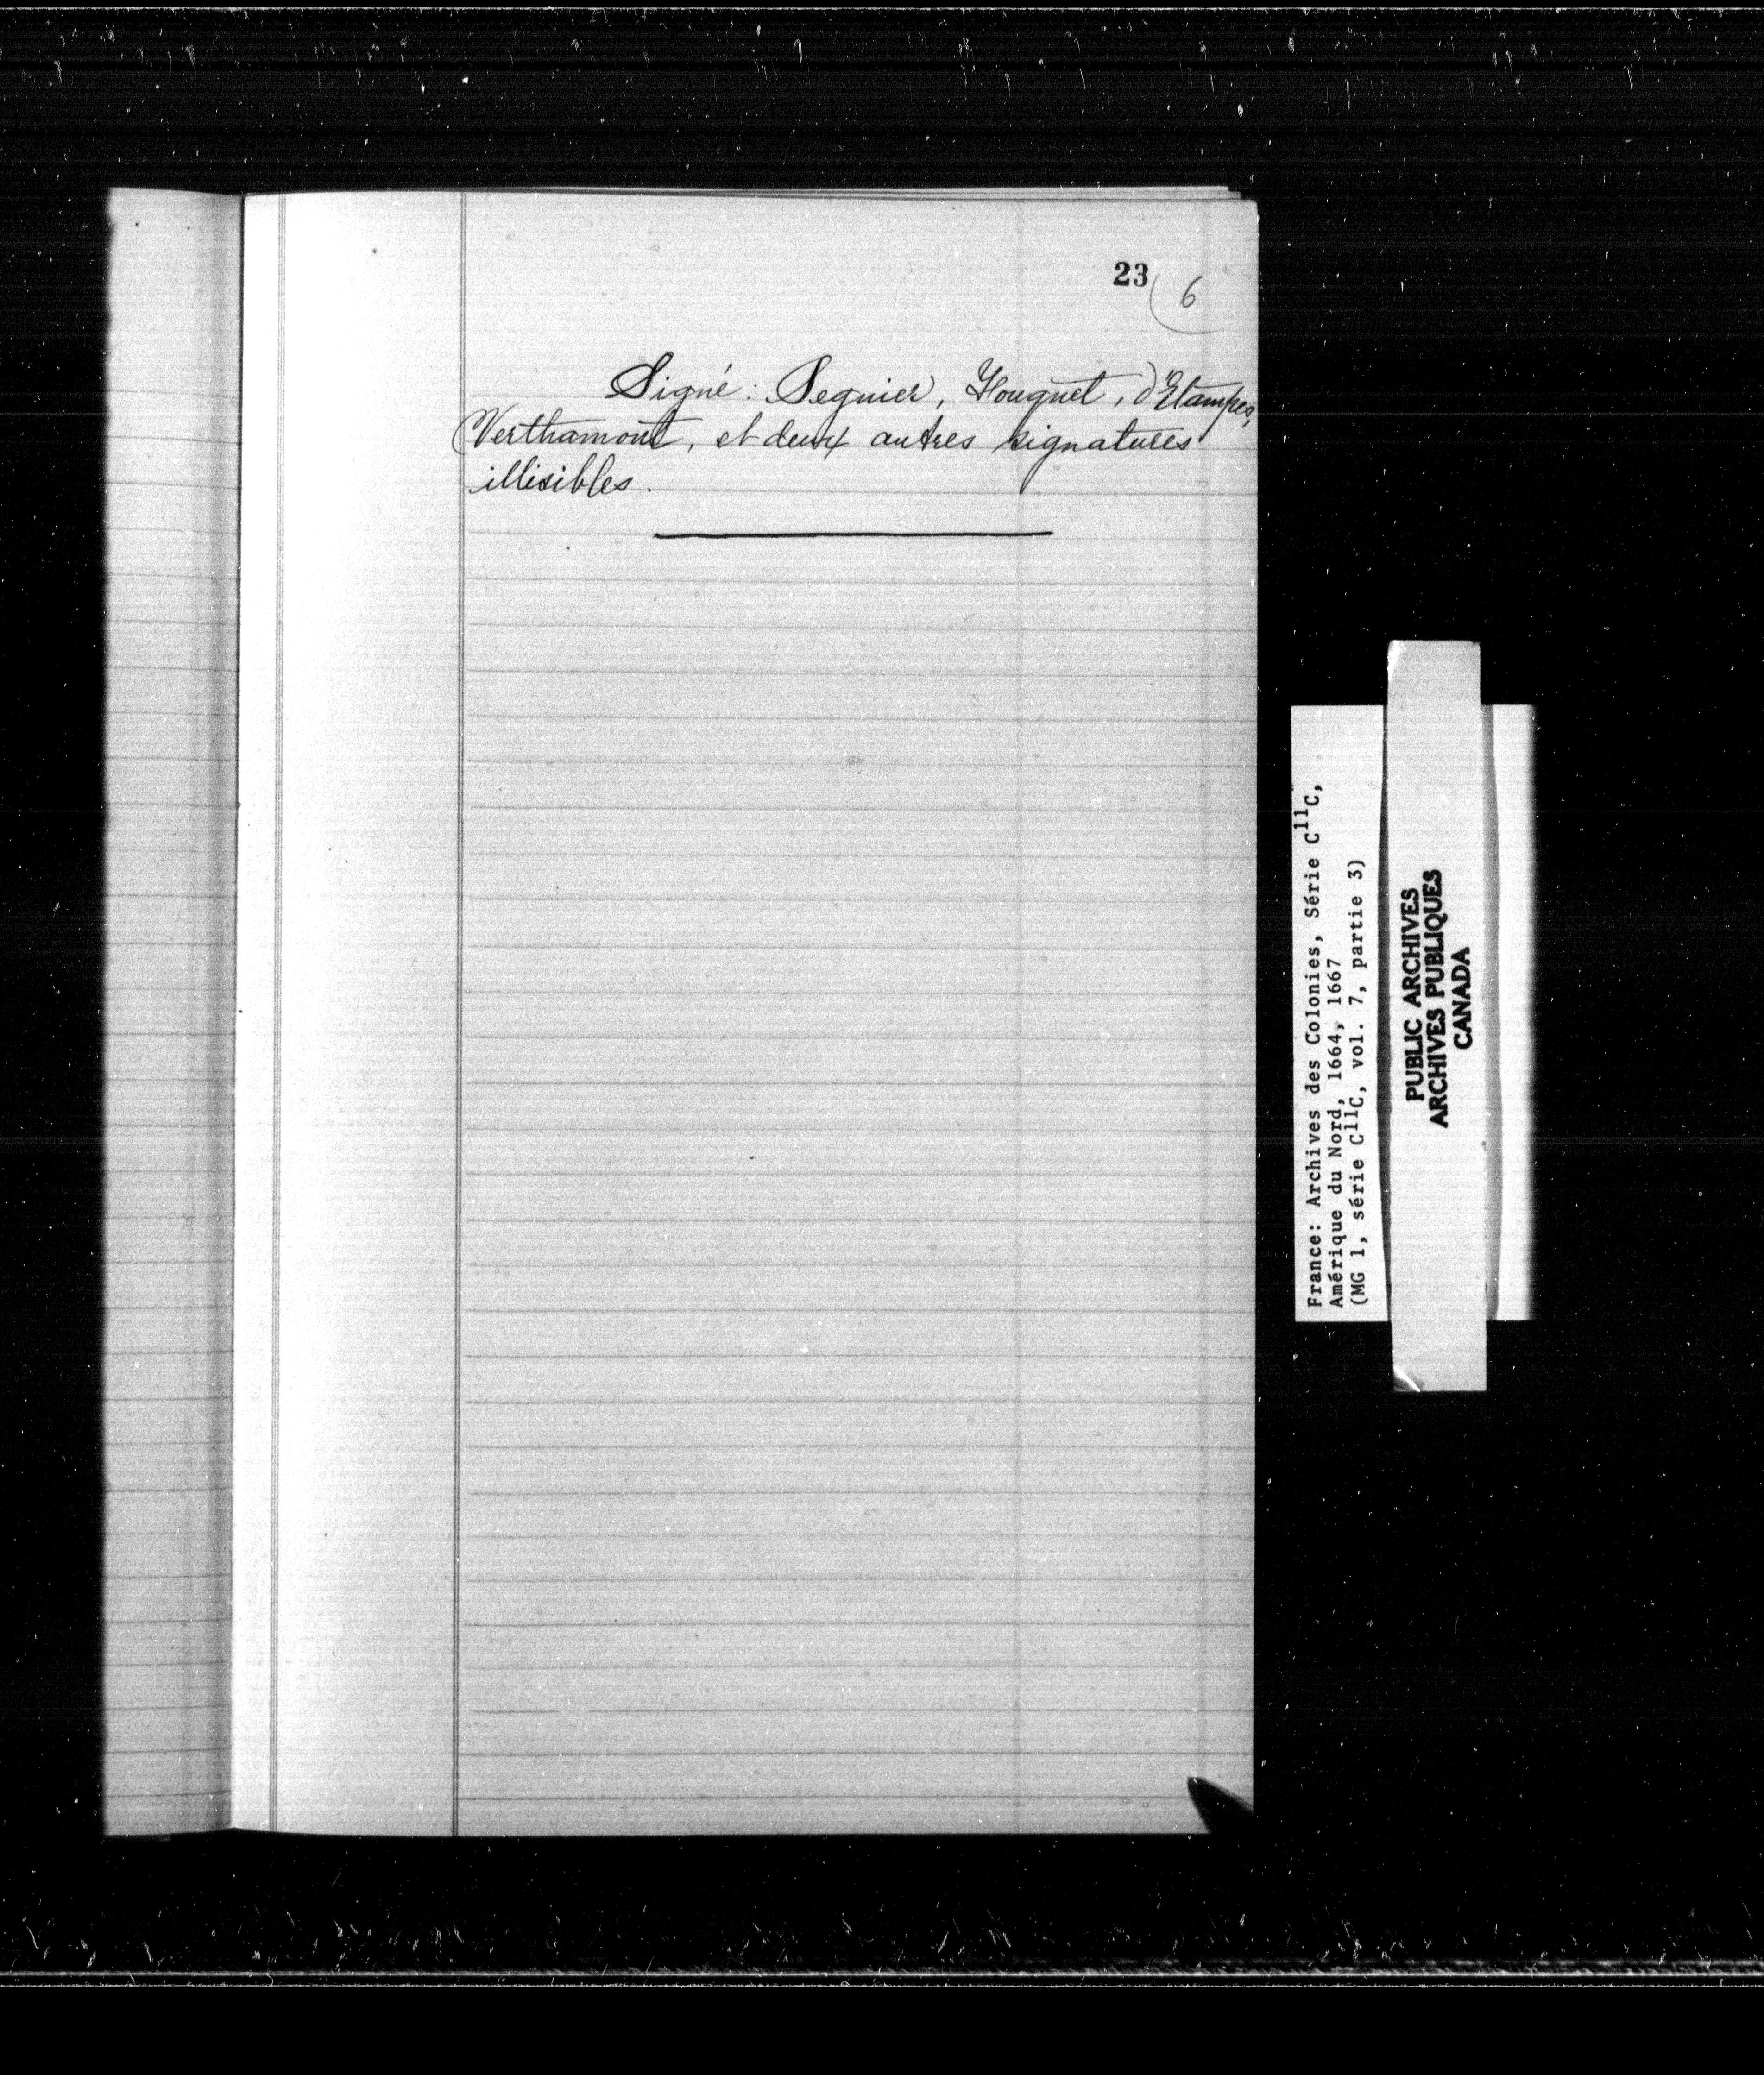 23
6
Signé : Seguier, Fouquet, d'Etampes,
Verthamont, et deux autres signatures
illisibles.
France: Archives des Colonies, Série C11C,
Amérique du Nord, 1664, 1667
(MG 1, série C11C, vol. 7, partie 3)
PUBLIC ARCHIVES
ARCHIVES PUBLIQUES
CANADA